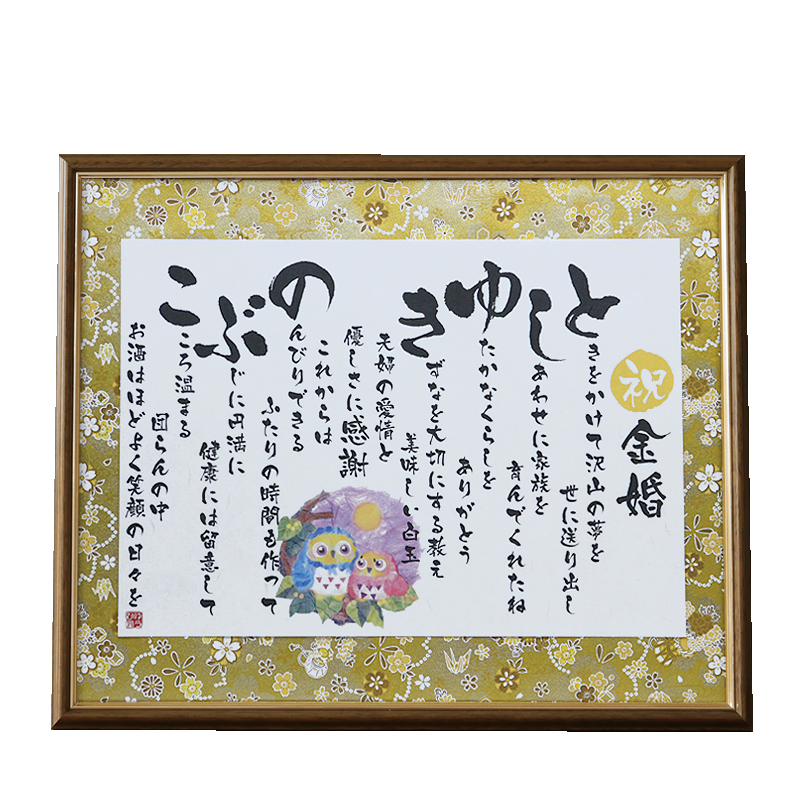 祝 金婚
ときをかけて沢山の夢を
世に送り出し
しあわせに家族を
育んでくれたね
ゆたかなくらしを
ありがとう
きずなを大切にする教え
美味しい白玉
夫婦の愛情と
優しさに感謝
これからは
のんびりできる
ふたりの時間も作って
ぶじに円満に
健康には留意して
こころ温まる
団らんの中
お酒はほどよく笑顔の日々を